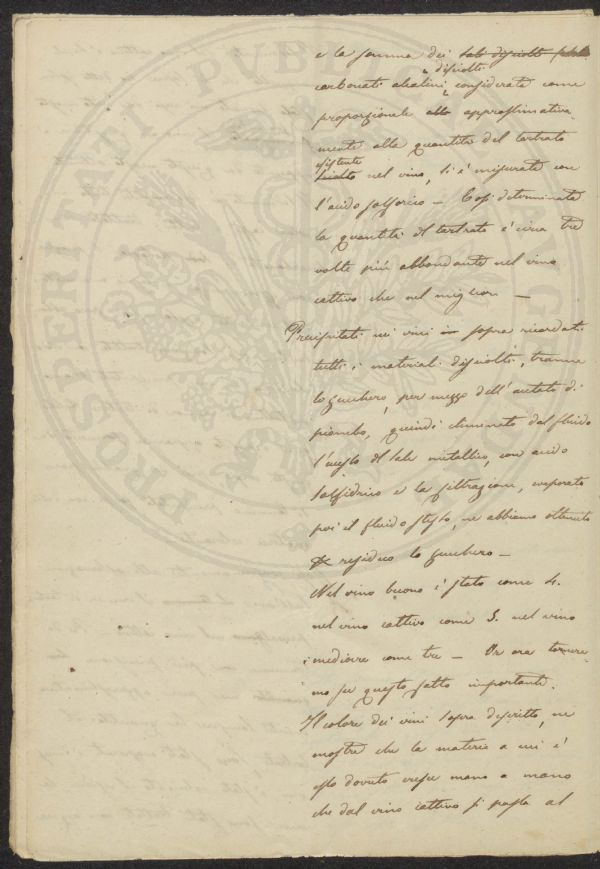 e la somma dei sali disciolti
disciolti
carbonati alcalini, considerata come
proporzionale alla approssimativa
mente alla quantità del tartrato
esistente
nel vino, si è misurata con
l'acido solforico — Così determinata
la quantità del tartrato è circa tre
volte più abbondante nel vino
cattivo che nel migliore —
Precipitati nei vini in sopra ricordati
tutti i materiali disciolti, tranne
lo zucchero, per mezzo dell'acetato di
piombo, quindi eliminato dal fluido
l'eccesso del sale metallico, con acido
solfidrico e la filtrazione, evaporato
poi il fluido stesso, ne abbiamo ottenuto
residuo lo zucchero —
Nel vino buono è stato come 4.
nel vino cattivo come 5. nel vino
mediocre come tre — Or ora tornere
mo su questo fatto importante.
Il colore dei vini sopra descritto, ne
mostra che la materia a cui è
esso dovuto cresce mano a mano
che dal vino cattivo si passa al
PROSPERITATI PVBLICAE AVGENDAE